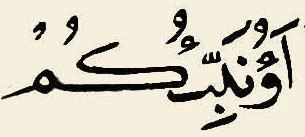 اَؤُنَبِّئُكُمُ